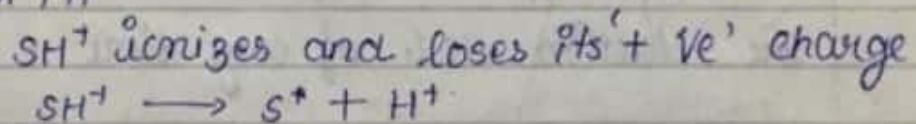 SH⁺ ionizes and loses its '+ ve' charge
SH⁺ ⟶ S* + H⁺